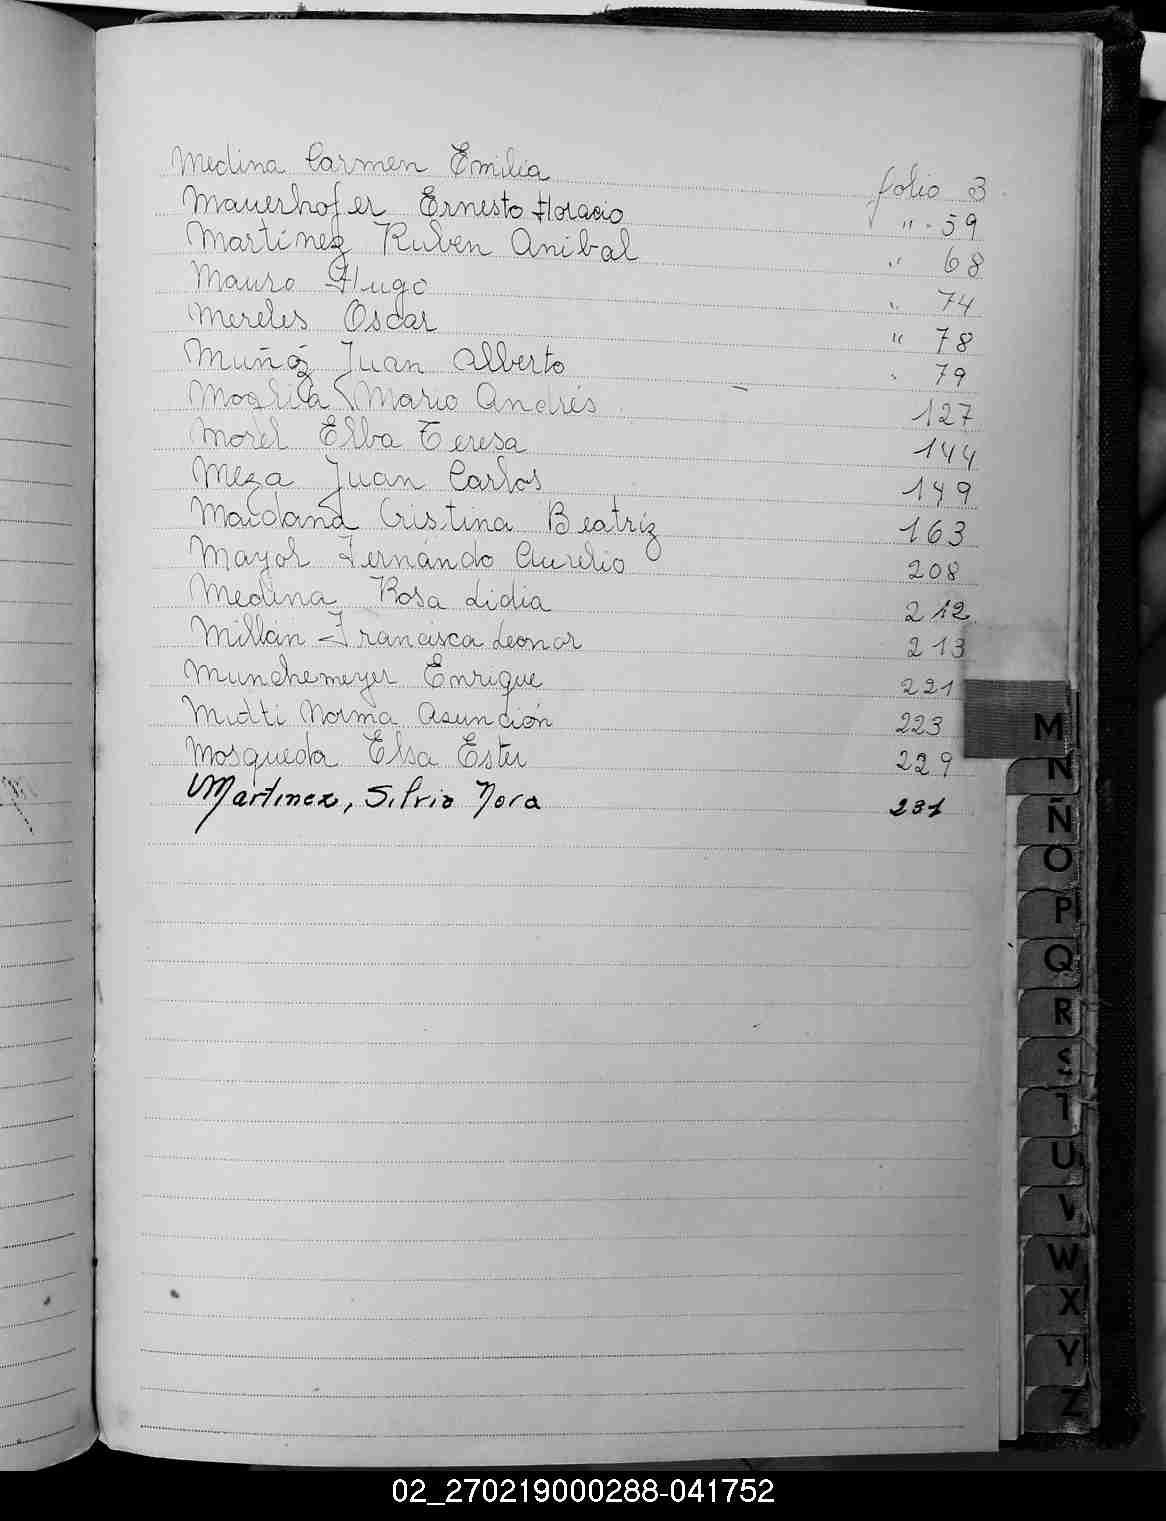 Medina Carmen Emilia folio 3
Mauerhofer Ernesto Horacio " 59
Martínez Ruben Anibal " 68
Mauro Hugo " 74
Mereles Oscar " 78
Muñóz Juan Alberto " 79
Moglia Mario Andrés 127
Morel Elba Teresa 144
Meza Juan Carlos 149
Maidana Cristina Beatríz 163
Mayol Fernándo Aurelio 208
Medina Rosa Lidia 212
Millan Francisca Leonor 213
Munchemeyer Enrique 221
Norma Asunción 223
Mosqueda Elsa Ester 229
Martinez, Silvia Nora 231
M
N
Ñ
O
P
Q
R
S
T
U
V
W
X
Y
Z
02_270219000288-041752